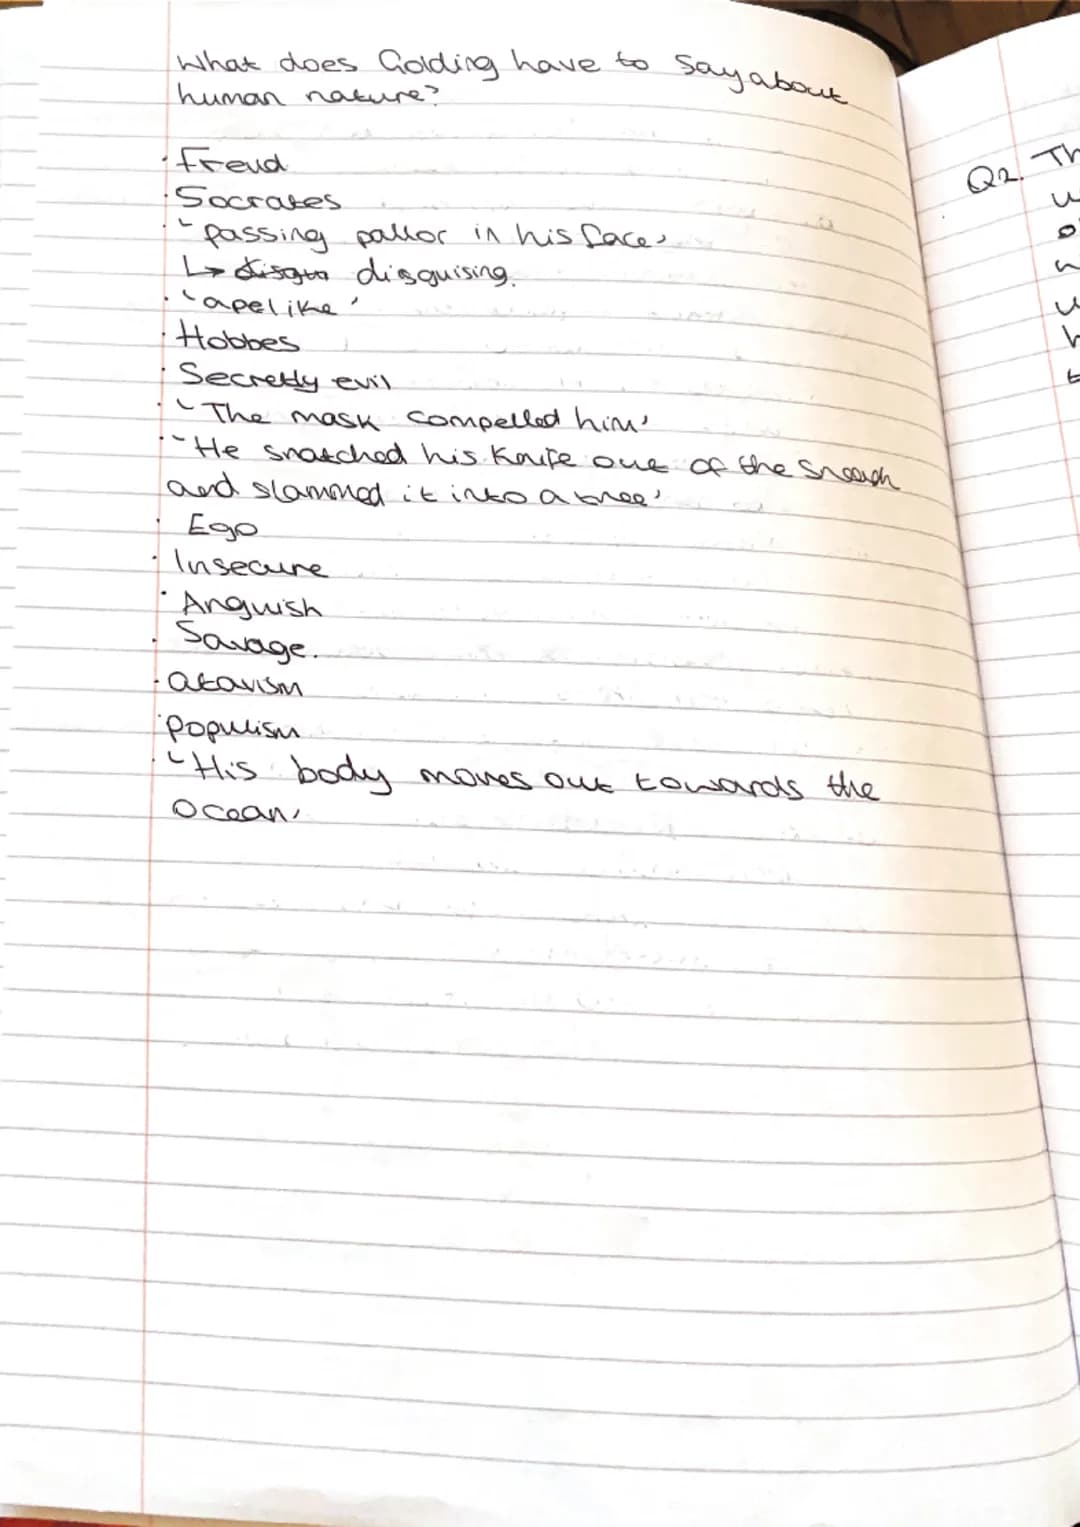 What does Golding have to say about
human nature?
· Freud
· Socrates
· 'passing pallor in his face'
↳ disguising.
· 'apelike'
· Hobbes
· Secretly evil
· 'The mask compelled him'
· 'He snatched his knife out of the sheath
and slammed it into a tree'
· Ego
· Insecure
· Anguish
· Savage.
· atavism
· Populism
· 'His body moves out towards the
ocean'
Q2. Th